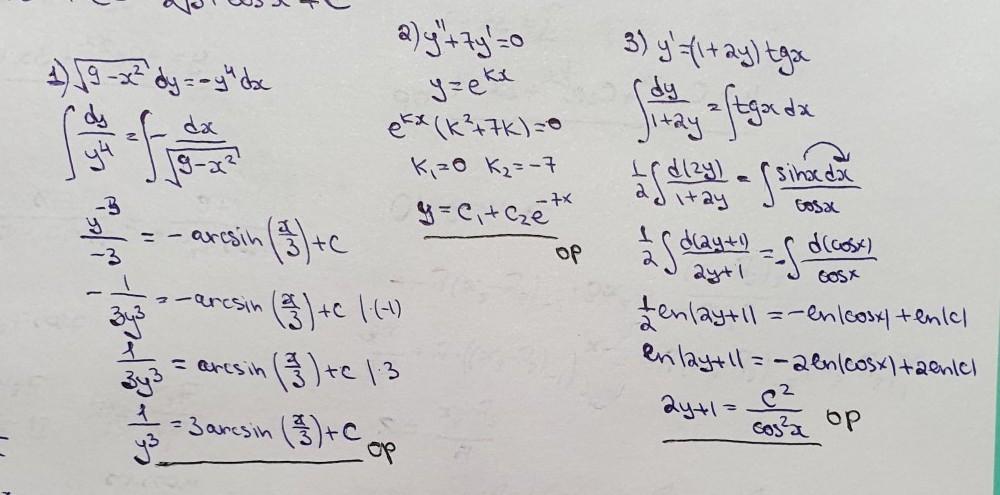 1) √(9-x²) dy = -y⁴ dx
∫ dy/y⁴ = ∫ - dx/√(9-x²)
y⁻³/-3 = - arcsin (x/3) + C
- 1/3y³ = - arcsin (x/3) + C |·(-1)
1/3y³ = arcsin (x/3) + C |·3
1/y³ = 3 arcsin (x/3) + C
ор
2) y'' + 7y' = 0
y = e^(kx)
e^(kx) (k² + 7k) = 0
k₁ = 0 k₂ = -7
y = C₁ + C₂e^(-7x)
ор
3) y' = (1 + 2y) tgx
∫ dy/1+2y = ∫ tgx dx
1/2 ∫ d(2y)/1+2y = ∫ sinx dx/cosx
1/2 ∫ d(2y+1)/2y+1 = - ∫ d(cosx)/cosx
1/2 ln|2y+1| = -ln|cosx| + ln|C|
ln|2y+1| = -2ln|cosx| + 2ln|C|
2y+1 = C²/cos²x ор